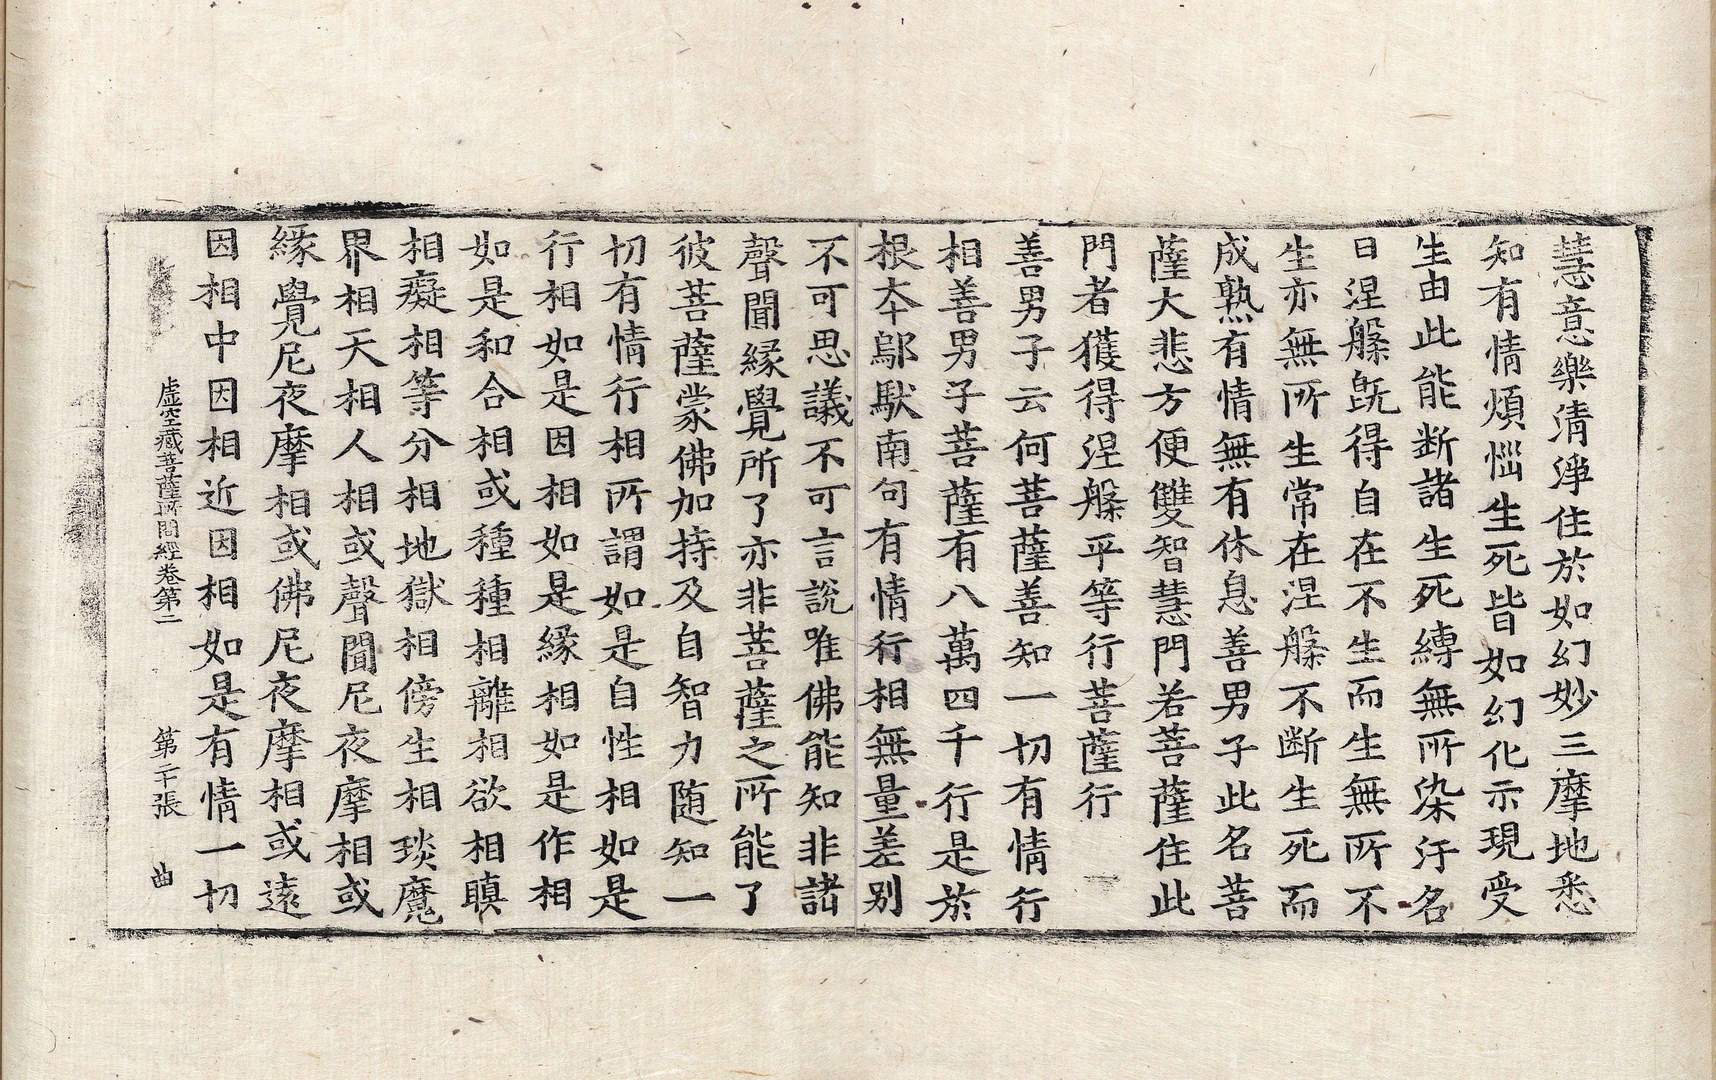 慧意樂清淨住於如幻妙三摩地悉
知有情煩惱生死皆如幻化示現受
生由此能断諸生死縛無所染汙名
曰涅槃旣得自在不生而生無所不
生亦無所生常在涅槃不断生死而
成熟有情無有休息善男子此名菩
薩大悲方便雙智慧門若菩薩住此
門者獲得涅槃平等行菩薩行
善男子云何菩薩善知一切有情行
相善男子菩薩有八萬四千行是於
根本鄔馱南句有情行相無量差别
不可思議不可言說唯佛能知非諸
聲聞緣覺所了亦非菩薩之所能了
彼菩薩蒙佛加持及自智力随知一
切有情行相所謂如是自性相如是
行相如是因相如是緣相如是作相
如是和合相或種種相離相欲相瞋
相癡相等分相地獄相傍生相琰魔
界相天相人相或聲聞尼夜摩相或
緣覺尼夜摩相或佛尼夜摩相或遠
因相中因相近因相如是有情一切
虛空藏菩薩所問經卷第二 第二十張 曲